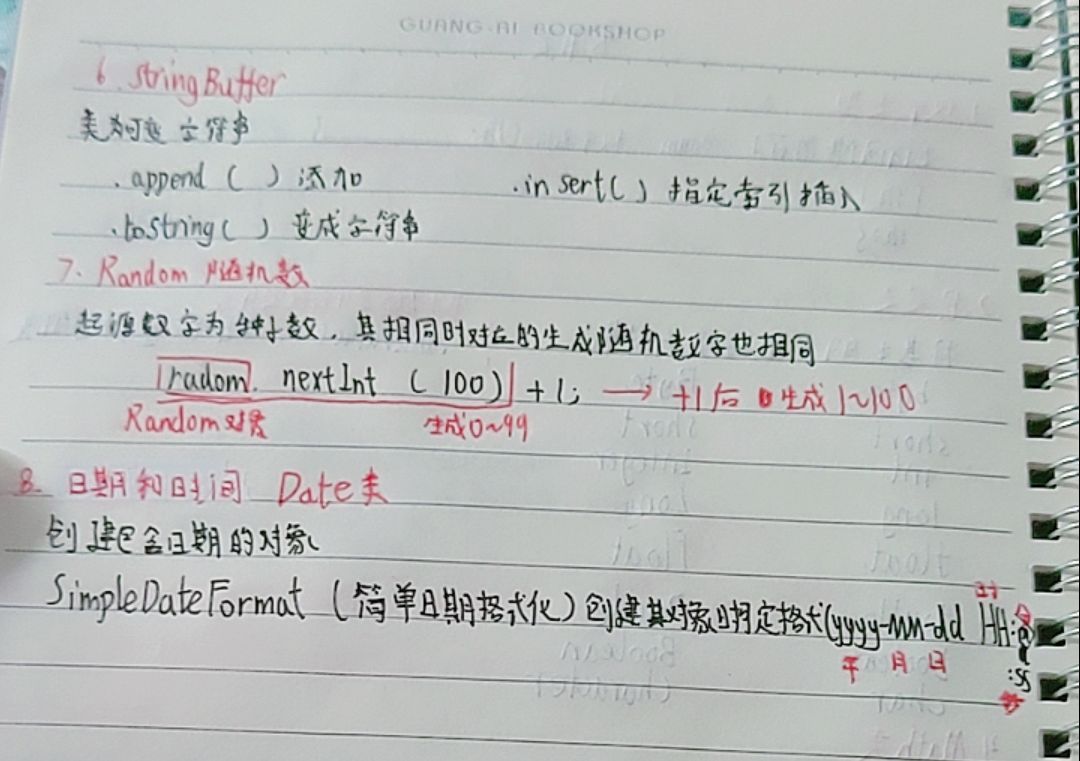 GUANG-AI BOOKSHOP
6. StringBuffer
类为可变字符串
.append ( ) 添加 .insert( ) 指定索引插入
.toString( ) 变成字符串
7. Random 随机数
起源数字为种子数,其相同时对应的生成随机数字也相同
radom. nextInt (100) +1; → +1后 生成1~100
Random对象 生成0~99
8. 日期和时间 Date类
创建包含日期的对象
时
SimpleDateFormat (简单日期格式化) 创建其对象时指定格式(yyyy-mm-dd HH:
年 月 日 :ss